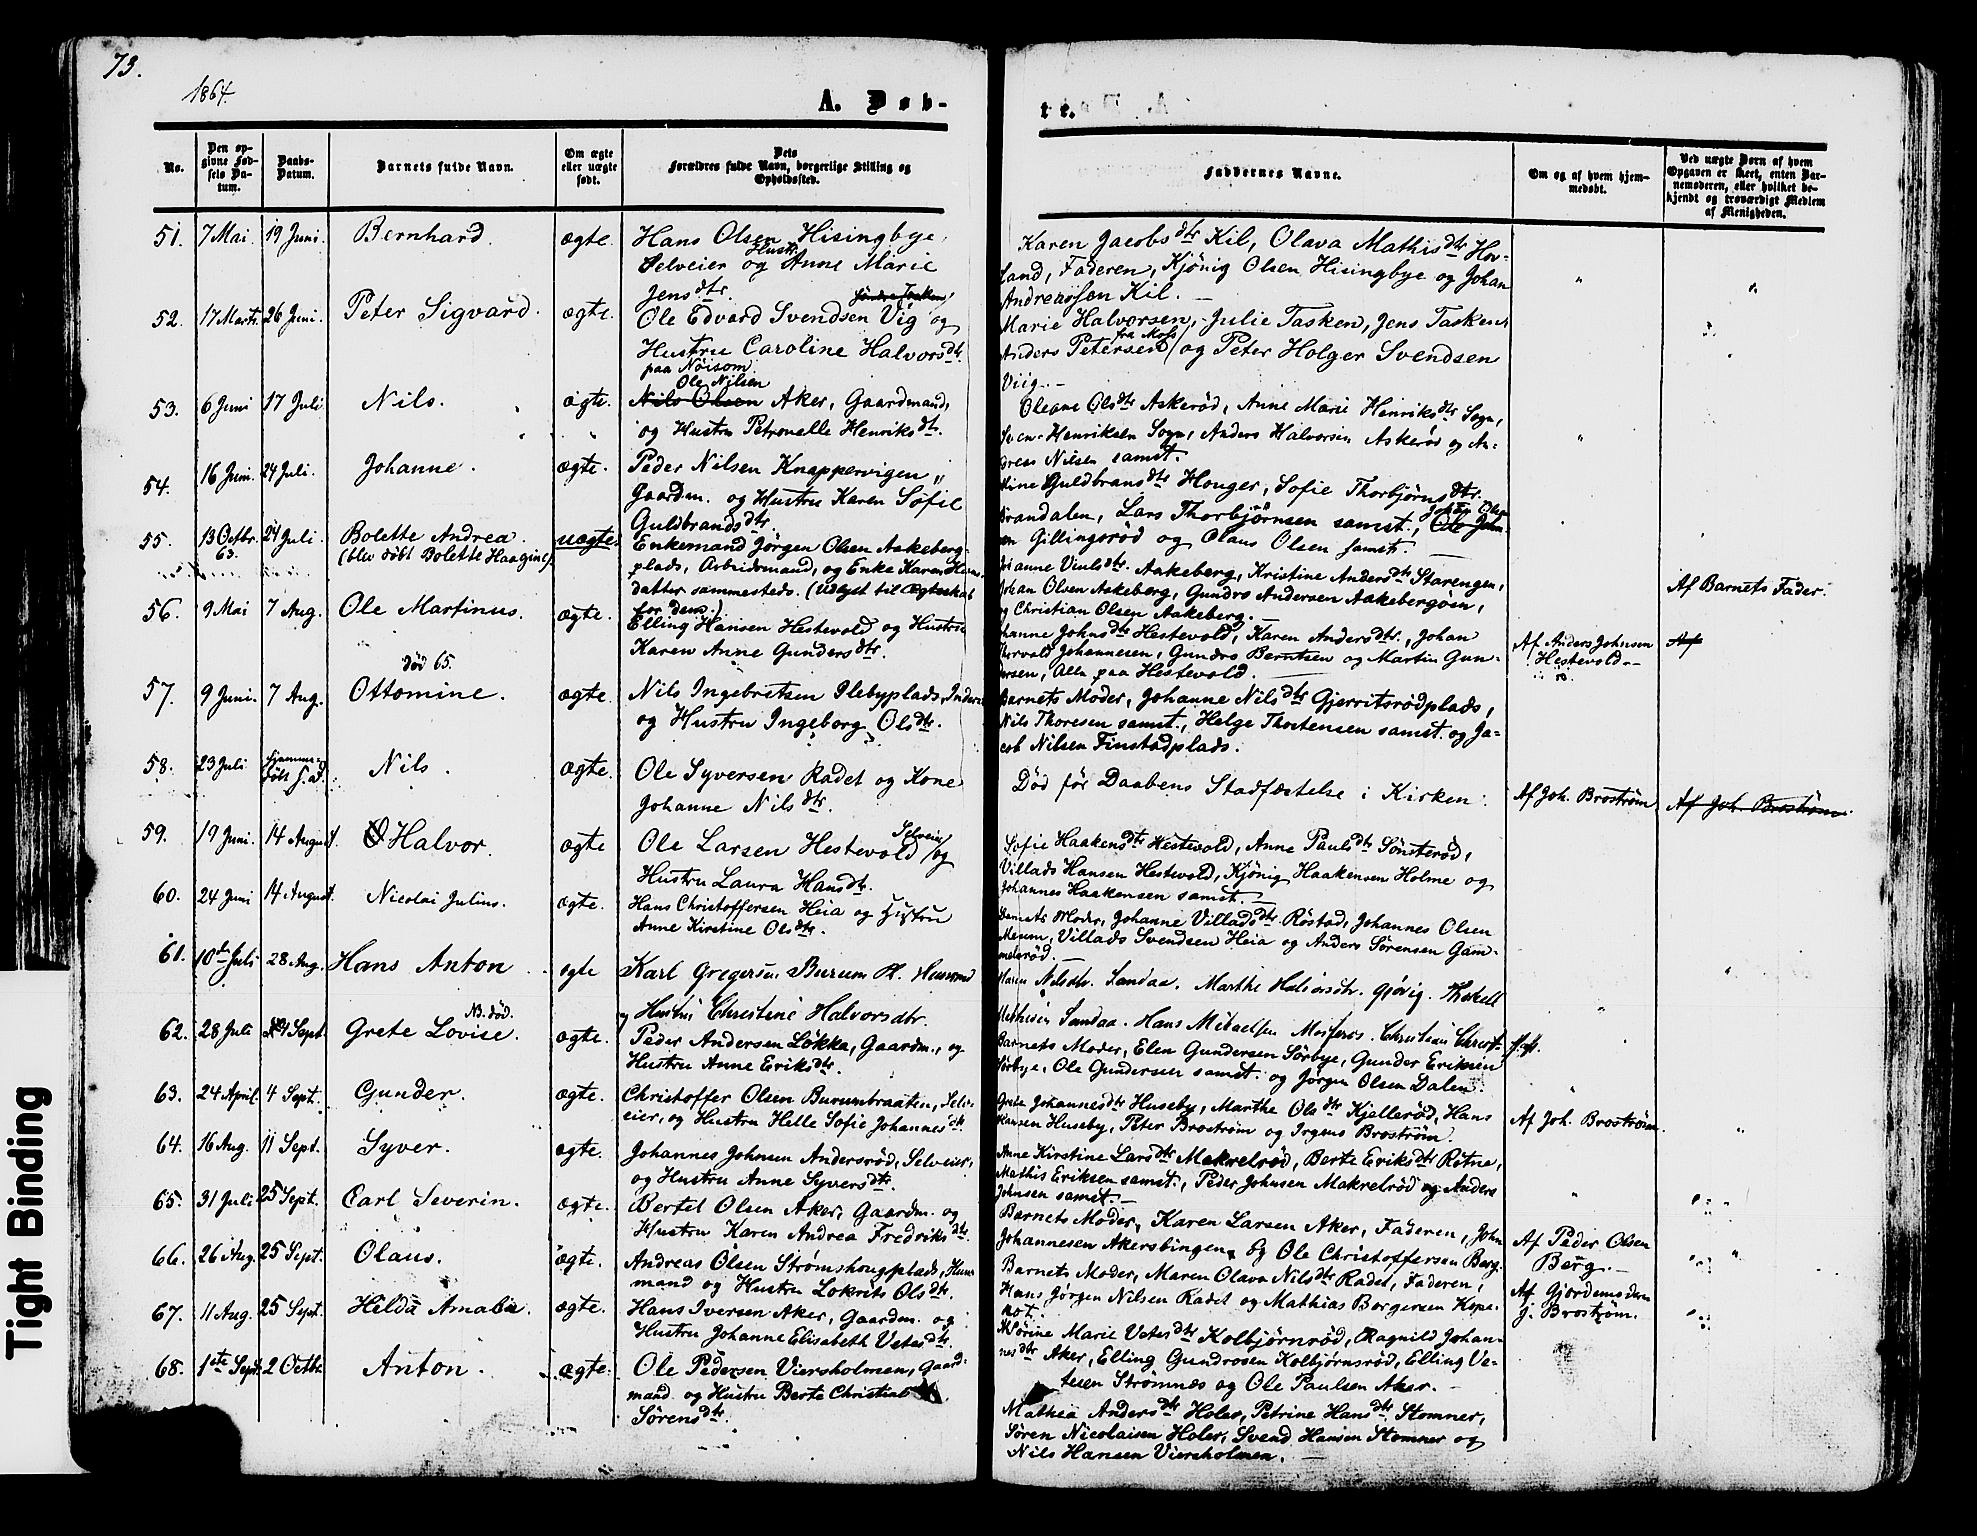 73.
1864.
A. Døb-
te.
No.
Den op-
givne Fød-
sels Da-
tum.
Daabs-
Datum.
Barnets fulde Navn.
Om ægte
eller uægte
født.
Dets
Forældres fulde Navn, borgerlige Stilling og
Opholdssted.
Faddernes Navne.
Om og af hvem hjem-
medøbt.
Ved uægte Børn af hvem
Opgaven er skeet, enten Bar-
nemoderen, eller hvilket be-
kjendt og troværdigt Medlem
af Menigheden.
51. 7 Mai. 19 Juni. Bernhard. ægte. Hans Olsen Hisingbye,
Selveier og Hustr. Anne Marie
Jensdtr.
Karen Jacobsdtr Kil, Olava Mathisdtr Hov-
land, Faderen, Kjönig Olsen Hisingbye og Johan
Andreassen Kil. —
52. 17 Marts. 26 Juni. Peter Sigvard. ægte. Ole Edvard Svendsen Vig og
Hustru Caroline Halvorsdtr.
paa Nöisom.
Marie Halvorsen, Julie Tasken, Jens Tasken,
Anders Petersen fra Moss og Peter Holger Svendsen
Viig. —
53. 6 Juni 17 Juli Nils. ægte. Ole Nilsen
Nils Olsen Aker, Gaardmand,
og Hustru Petronelle Henriksdtr.
Oleane Olsdtr Askeröd, Anne Marie Henriksdtr Sogn,
Sven Henriksen Sogn, Anders Halvorsen Askeröd og An-
dreas Nilsen samst.
54. 16 Juni. 24 Juli. Johanne. ægte. Peder Nilsen Knappervigen,
Gaardm. og Hustru Karen Sofie
Guldbrandsdtr.
Guldbransdtr Houger, Sofie Thorbjörnsdtr.
Brandalen, Lars Thorbjörnsen samst., Johan Olsen
Gillingsröd og Claus Olsen samst. —
55. 13 Octbr. 63. 24 Juli. Bolette Andrea.
(blev döbt Bolette Haagine).
uægte. Enkemand Jörgen Olsen Aakeberg-
plads, Arbeidsmand, og Enke Karen
datter sammesteds. (Udlyst til Ægteskab
for dem.)
Aakeberg, Kristine Andersdtr Starengen,
Johan Olsen Aakeberg, Gundro Andersen Aakebergöen,
og Christian Olsen Aakeberg. —
Af Barnets Fader.
56. 9 Mai 7 Aug. Ole Martinus. ægte. Elling Hansen Hestevold og Hustru
Karen Anne Gundersdtr.
Johnsdtr Hestevold, Karen Andersdtr., Johan
Thorvald Johannesen, Gundro Berntsen og Martin Gun-
dersen, Alle paa Hestevold. —
Af Anders Johnsen
Hestevold. —
Af
död 65.
57. 9 Juni. 7 Aug. Ottomine. ægte. Nils Ingebretsen Ilebyplads,
og Hustru Ingeborg Olsdtr.
Barnets Moder, Johanne Nilsdtr Gjerritsrödplads,
Nils Thoresen samst., Helge Thostensen samst. og Ja-
cob Nilsen Finstadplads.
58. 23 Juli Hjemme-
döbt Nils. ægte. Ole Syversen Radet og Kone
Johanne Nilsdtr.
Död för Daabens Stadfæstelse i Kirken.
Af Joh. Broström. Af Joh. Broström.
59. 19 Juni. 14 August. Halvor. ægte Ole Larsen Hestevold Selveier og
Hustru Laura Hansdtr.
Sofie Haakensdtr Hestevold, Anne Paulsdtr Sönsteröd,
Villads Hansen Hestevold, Kjönig Haakensen Holme og
Johannes Haakensen samst. —
60. 24 Juni 14 August. Nicolai Julius. ægte. Hans Christoffersen Heia og Hustru
Anne Kirstine Olsdtr.
Barnets Moder, Johanne Villadsdtr Röstad, Johannes Olsen
Merum, Villads Svendsen Heia og Anders Sörensen Gam-
melsröd. —
61. 10de Juli 28 Aug. Hans Anton ægte Karl Gregersen Burum Pl. Husmand
og Hustru Christine Halvorsdtr.
Maren Nilsdtr. Sandaa. Marthe Halvorsdtr. Gjövig. Thorkell
Mathisen Sandaa. Hans Mikaelsen Mosseros. Christian
NB. död.
62. 28 Juli 4 Sept. Grete Lovise. ægte. Peder Andersen Lökka, Gaardm., og
Hustru Anne Eriksdtr.
Barnets Moder, Elen Gundersen Sörbye, Gunder Eriksen
Sörbye, Ole Gundersen samst. og Jörgen Olsen Dalen.
63. 24 April. 4 Sept. Gunder. ægte. Christoffer Olsen Burumbraaten, Selv-
eier, og Hustru Helle Sofie Johannesdtr.
Grete Johannesdtr Huseby, Marthe Olsdtr Kjelleröd, Hans
Hansen Huseby, Peter Broström og Irgens Broström.
Af Joh. Broström.
64. 16 Aug. 11 Sept. Syver. ægte. Johannes Johnsen Andersröd, Selveier,
og Hustru Anne Syversdtr.
Anne Kirstine Larsdtr Makrelröd, Berte Eriksdtr Rötne,
Mathis Eriksen samst., Peder Johnsen Makrelröd og Anders
Johnsen samst. —
65. 31 Juli 25 Sept. Carl Severin. ægte. Bertel Olsen Aker, Gaardm. og
Hustru Karen Andrea Fredriksdtr.
Barnets Moder, Karen Larsen Aker, Faderen, John
Johannesen Akersbingen og Ole Christoffersen Berg.
Af Peder Olsen
Berg. —
66. 26 Aug. 25 Sept. Olaus. ægte. Andreas Olsen Strömshougplads, Hus-
mand og Hustru Lokrits Olsdtr.
Barnets Moder, Maren Olava Nilsdtr Radet, Faderen,
Hans Jörgen Nilsen Radet og Mathias Borgersen Kope-
rot.
Af Gjordemoderen
J. Broström.
67. 11 Aug. 25 Sept. Hilda Amalia. ægte. Hans Iversen Aker, Gaardm. og
Hustru Johanne Elisabeth Vetesdtr.
Sörine Marie Vetesdtr Kolbjörnröd, Ragnild Johan-
nesdtr Aker, Elling Gundrosen Kolbjörnsröd, Elling Ve-
tesen Strömnæs og Ole Paulsen Aker. —
68. 1ste Sept. 2 Octbr. Anton. ægte. Ole Pedersen Viersholmen, Gaard-
mand og Hustru Berte Christine
Sörensdtr.
Mathea Andersdtr Holer, Petrine Hansdtr Stomner,
Sören Nicolaisen Holer, Svend Hansen Stomner og
Nils Hansen Viersholmen. —
Tight Binding